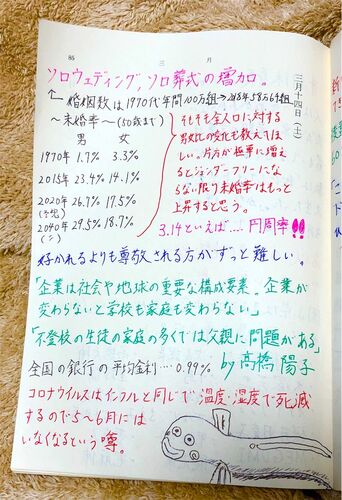 85
三月
三月十四日(土)
ソロウェディング、ソロ葬式の増加。
婚姻数は1970代年間100万組→2018年58万6千組
~未婚率~(50歳まで)
男 女
1970年 1.7% 3.3%
2015年 23.4% 14.1%
2020年 26.7% 17.5%
(予想)
2040年 29.5% 18.7%
(〃)
そもそも全人口に対する
男女比の変化も教えてほ
しい。片方が極率に増え
るとジェンダーフリーにな
らない限り未婚率はもっと
上昇すると思う。
3.14といえば…. 円周率!!
好かれるよりも尊敬される方がずっと難しい。
「企業は社会や地球の重要な構成要素。企業が
変わらないと学校も家庭も変わらない」
「不登校の生徒の家庭の多くでは父親に問題がある」
by 高橋 陽子
全国の銀行の平均金利…0.99%
コロナウイルスはインフルと同じで温度・湿度で死滅
するので5~6月には
いなくなるという噂。